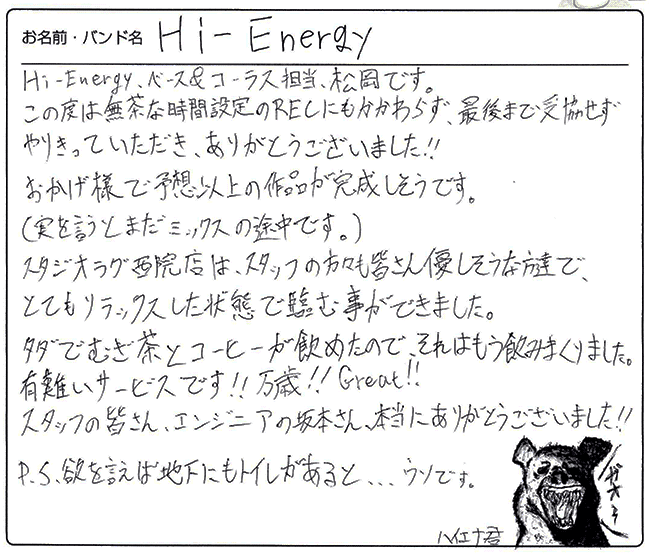 お名前・バンド名 Hi-Energy
Hi-Energy、ベース&コーラス担当、松岡です。
この度は無茶な時間設定のRECにもかかわらず、最後まで妥協せず
やりきっていただき、ありがとうございました!!
おかげ様で予想以上の作品が完成しそうです。
(実を言うとまだミックスの途中です。)
スタジオラグ西院店は、スタッフの方々も皆さん優しそうな方達で、
とてもリラックスした状態で臨む事ができました。
タダでむぎ茶とコーヒーが飲めたので、それはもう飲みまくりました。
有難いサービスです!!万歳!!Great!!
スタッフの皆さん、エンジニアの坂本さん、本当にありがとうございました!!
P.S.欲を言えば地下にもトイレがあると、、、ウソです。
ガオー
ハイエナ君